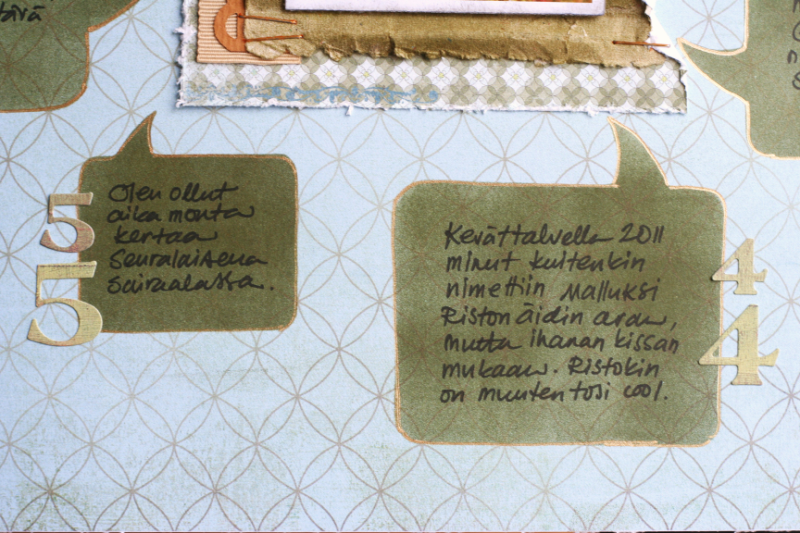 5
5
Olen ollut
aika monta
kertaa
seuralaisena
sairaalassa.
Kevättalvella 2011
minut kuitenkin
nimettiin Malluksi
Riston äidin aran,
mutta ihanan kissan
mukaan. Ristokin
on muuten tosi cool.
4
4